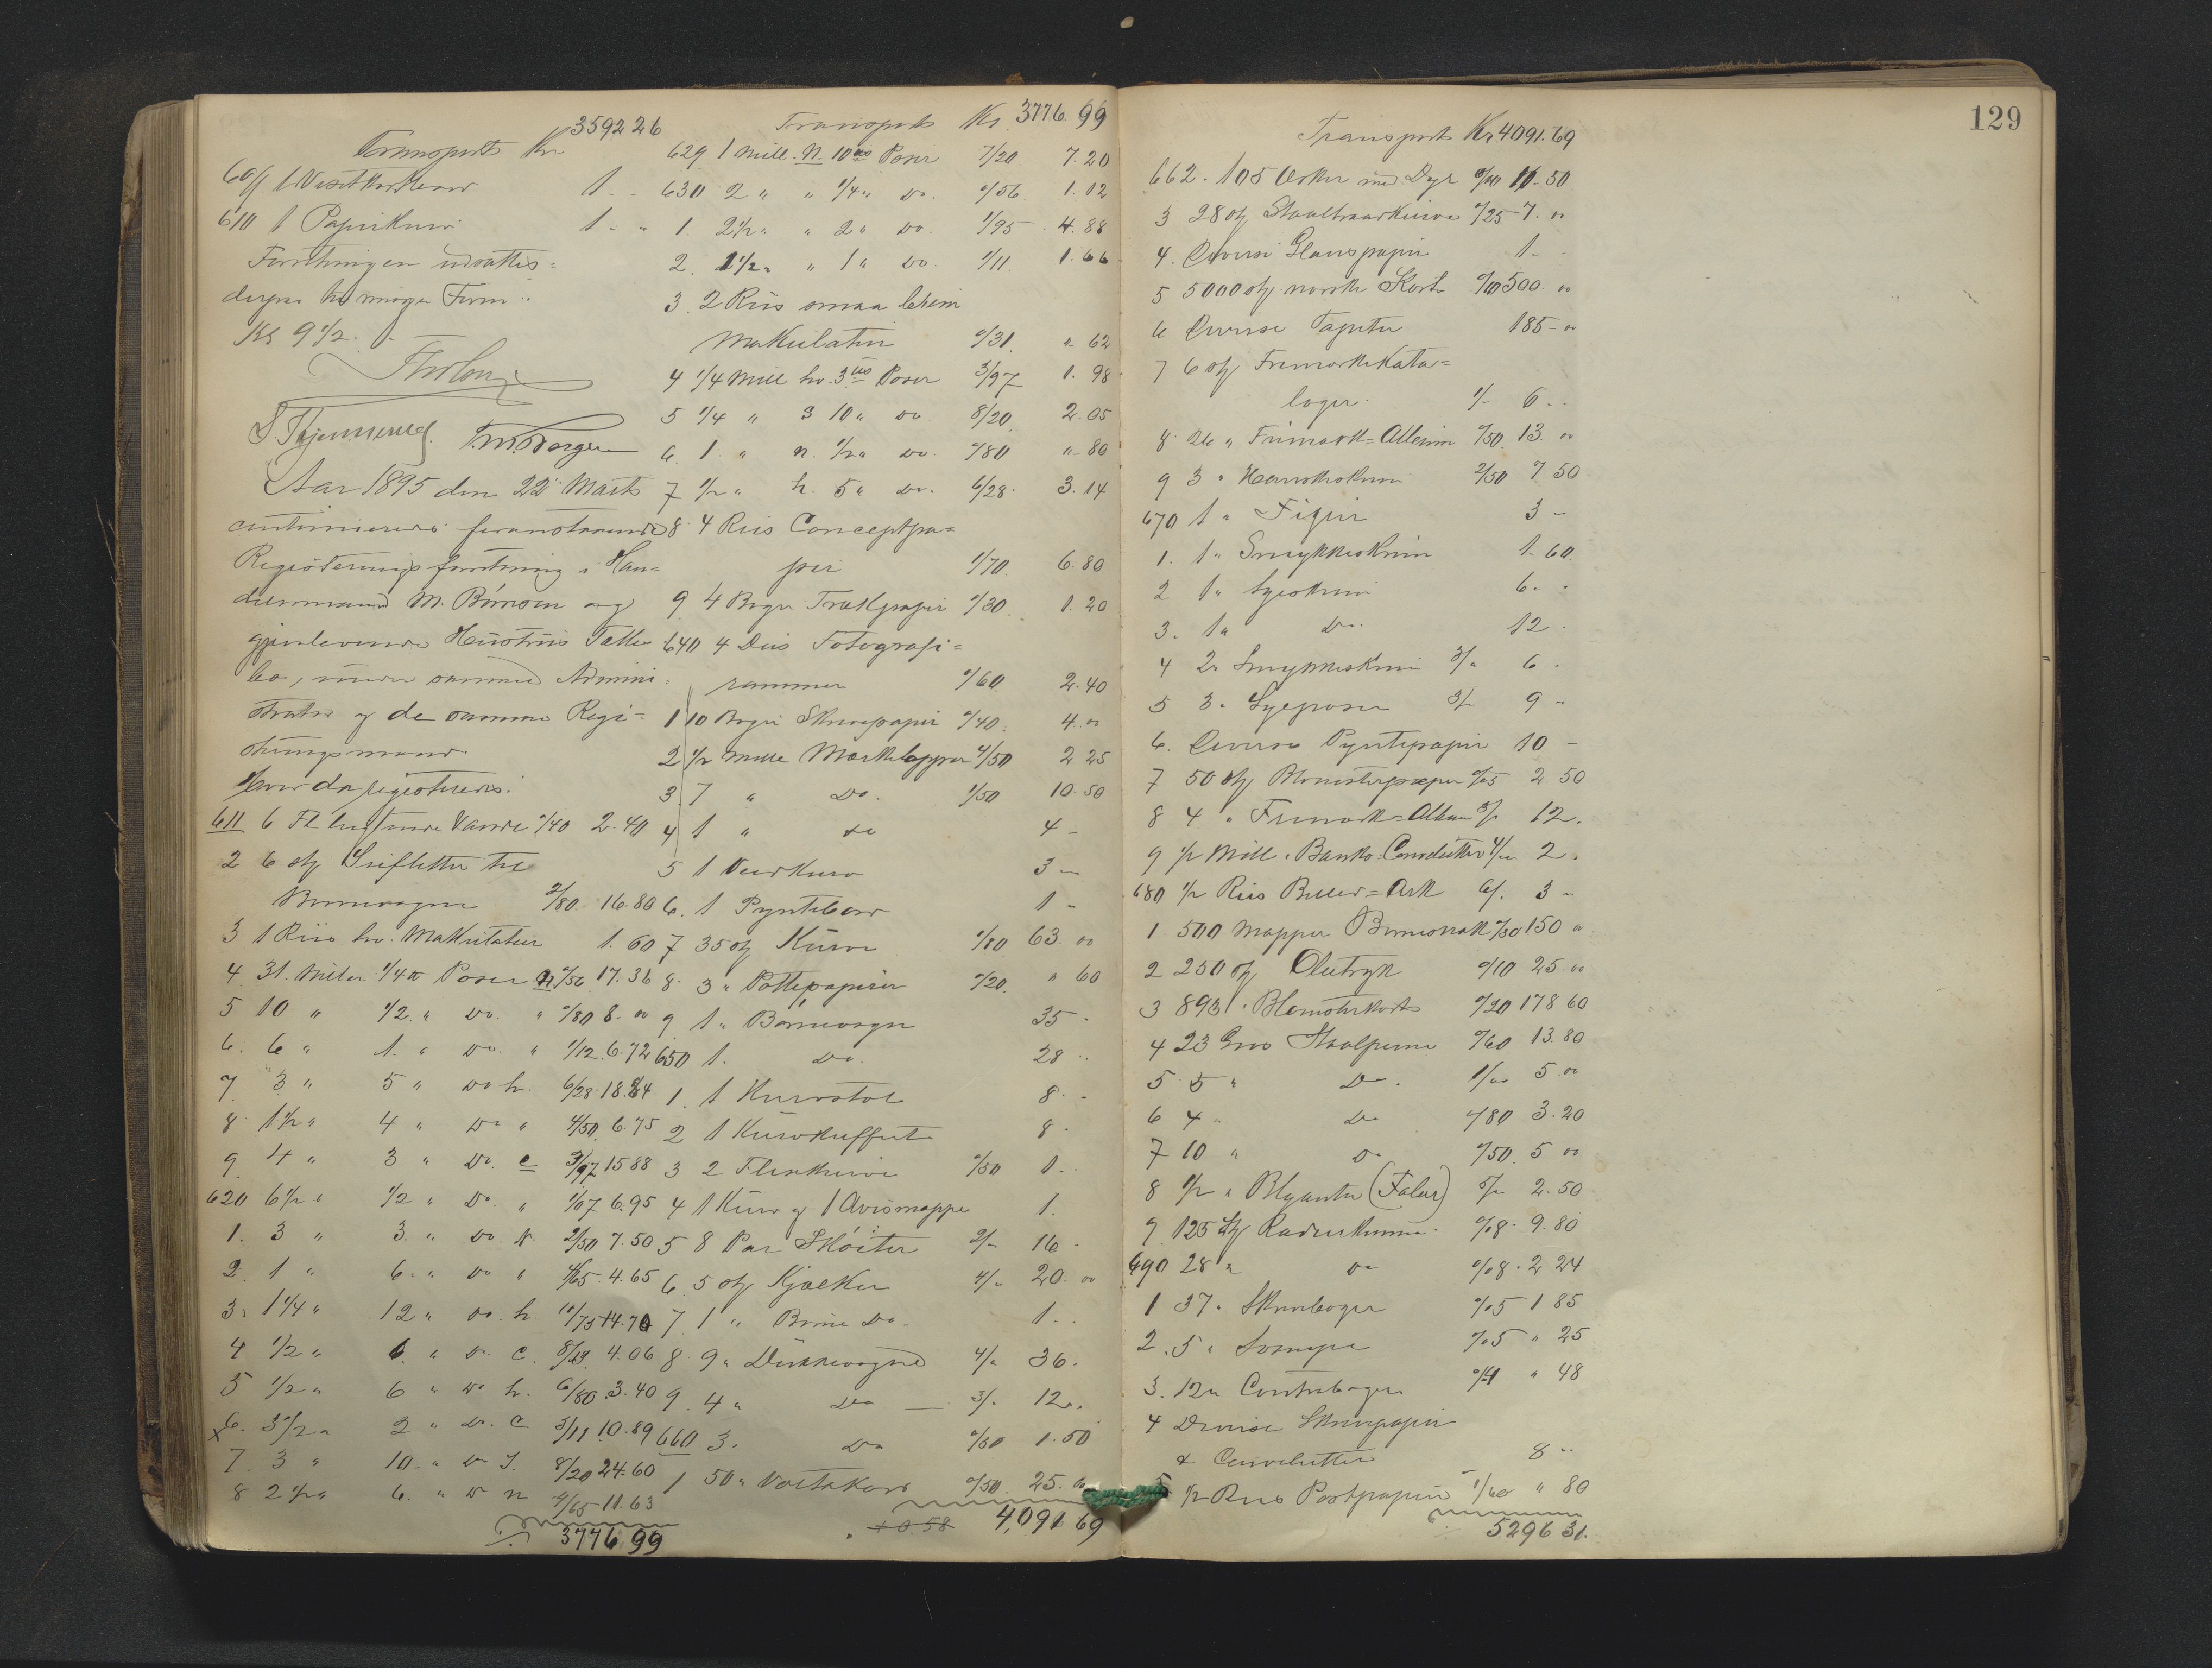 Transport Kr 3592 26
609 1 Visitkortkurv 1. -
610 1 Papirkurv 1 - "
Forretningen udsattes =
derpaa til morgen Form:
Kl 9 1/2.
Aar 1895 den 22 Marts
continueredes foranstaaende
Registreringsforretning i Han=
delsmand M. Børresen og
gjenlevende Hustrus Fælles
bo, under samme Admini=
strator og de samme Regi=
streringsmænd.
Hvor da registreredes.
611 6 Fl 0/40 2.40
2 6 stk til
Børnevogne 2/80 16.80
3 1 Riis hv. Makulatur 1.60
4 31. Miller 1/4 Poser n 0/56 17.36
5 10 " 1/2 " Do. " 0/80 8. 00
6. 6 " 1. " Do. " 1/12 6.72
7 3 " 5 " Do h. 6/28 18.84
8 1 1/2 " 4 " Do " 4/50 6.75
9 4 " 3 " Do. c 3/97 15 88
620 6 1/2 " 1/2 " Do. " 1/07 6.95
1. 3 " 3. " Do. N. 2/50 7.50
2. 1 " 6. " Do " 4/65 4.65
3. 1 1/4 " 12 " Do. h 11/75 14.70
4 1/2 " 6. " Do. C. 8/13 4.06
5 1/2 " 6 " Do h. 6/80 3.40
x 6. 3 1/2 " 2 " Do. C 3/11 10.89
7 3 " 10. " Do J. 8/20 24.60
8 2 1/2 " 6. " Do n 4/65 11.63
3776 99
Transport Kr. 3776 99
629 1 Mill. N. 10 Poser 7/20 7.20
630 2 " " 1/4 " Do. 0/56 1.12
1. 2 1/2 " " 2 " Do. 1/95 4.88
2. 1 1/2 " " 1 " Do. 1/11. 1.66
3. 2 Riis smaa
Makulatur 0/31. " 62
4 1/4 Mill hv. 3 Poser 3/97 1. 98
5 1/4 " 3 10 " Do. 8/20 2.05
6. 1. " n. 1/2 " Do. 0/80 " 80
7 1/2 " h. 5 " Do. 6/28. 3.14
8 4 Riis Conceptpa=
pir 1/70 6.80
9 4 Bøger Trækpapir 0/30 1.20
640 4 Dus Fotografi=
rammer 0/60 2.40
1 10 Bøger Skrivepapir 0/40 4.00
2 1/2 Mille Mærkelapper 4/50 2 25
3 7 " Do. 1/50 10.50
4 1 " do 4 -
5 1 Vedkurv 3 -
6. 1 Pyntebord 1 -
7 35 stk Kurve 1/80 63. 00
8. 3 " Pottepapirer 0/20. " 60
9 1 " Børnevogn 35 -
650 1. Do. 28 -
1. 1 Kurvstol 8. -
2 1 Kurvkuffert 8 -
3 2 Flaskekurve 0/50 1. -
4 1 Kurv og 1 Avismappe 1.
5 8 Par Skøiter 2/- 16 -
6. 5 stk Kjælker 4/- 20. 00
7. 1 " Børne Do. 1 -
8. 9 " Dukkevogne 4/- 36.
9. 4 " Do 3/- 12.
660 3. Do 0/50 1.50
1 50 " 0/50 25. 00
+ 0.58 4,091 69
129
Transport Kr 4091.69
662. 105 Æsker med Dyr 0/10 10.50
3 28 stk Staaltraadkurve 0/25 7. 00
4. Diverse Glanspapir 1. -
5 5000 stk norske Kort 0/10 500. 00
6 Diverse Tapeter 185 - 00
7 6 stk Frimærkekata=
loger 1/- 6. -
8 26 " Frimærk=Album 0/50 13. 00
9 3 " Hanskeskrin 2/50 7 50
670 1 " Figur 3 -
1. 1 " Smykkeskrin 1. 60
2 1 " Syeskrin 6. -
3. 1 " Do. 12 -
4 2 " Smykkeskrin 3/- 6 -
5 3 " Syeposer 3/- 9 -
6. Diverse Pyntepapir 10 -
7 50 stk Blomsterpapir 0/05 2.50
8 4 " Frimærk=Album 3/- 12.
9 1/2 Mill. Banko Convolutter 4/- 2.
680 1/2 Riis Billed=Ark 6/. 3 -
1. 500 Mapper 0/30 150 00
2 250 stk Olietryk 0/10 25.00
3 893 " Blomsterkort 0/20 178 60
4 23 Gros Staalpenne 0/60 13.80
5 5 " Do. 1/00 5.00
6 4 " Do 0/80 3.20
7 10 " Do 0/50. 5 00
8 1/2 " Blyanter (Faber) 5/- 2.50
9. 125 stk Raderkummi 0/08. 9.80
690 28 " Do 0/08. 2 24
1 37 " Skrivbøger 0/05 1 85
2. 5 " 0/05 " 25
3. 12 " Contrabøger 0/04 " 48
4 Diverse Skrivpapir
& Convolutter 8 -
5 1/2 Riis Postpapir 1/60 " 80
5296 31.